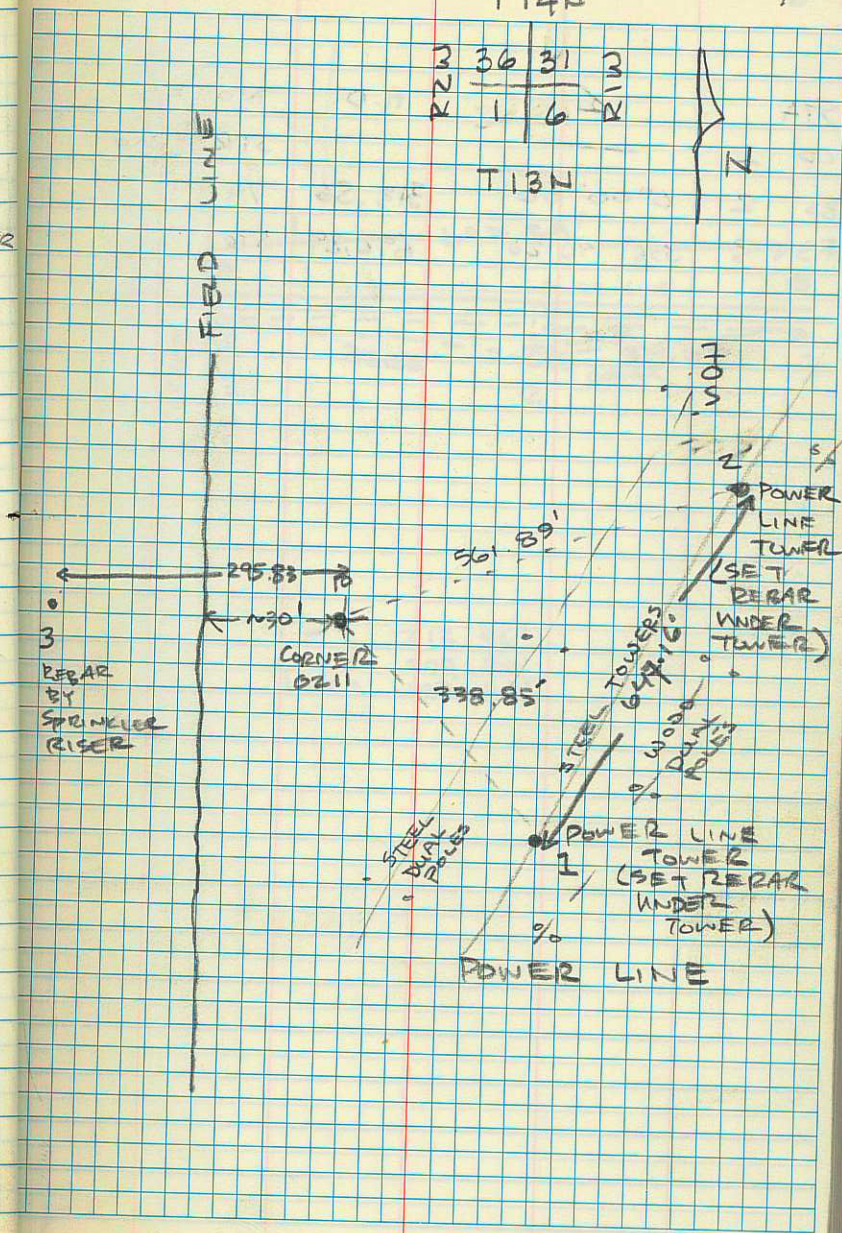 T14N
R2W 36 31 R1W
1 6
T13N
N
FIELD LINE
2
POWER
LINE
TOWER
(SET
REBAR
UNDER
TOWER)
561.89'
295.83
~30'
CORNER
3
REBAR
BY
SPRINKLER
RISER
338.85'
STEEL TOWERS
WOOD
DUAL
POLES
STEEL
DUAL
POLES
1
POWER LINE
TOWER
(SET REBAR
UNDER
TOWER)
POWER LINE